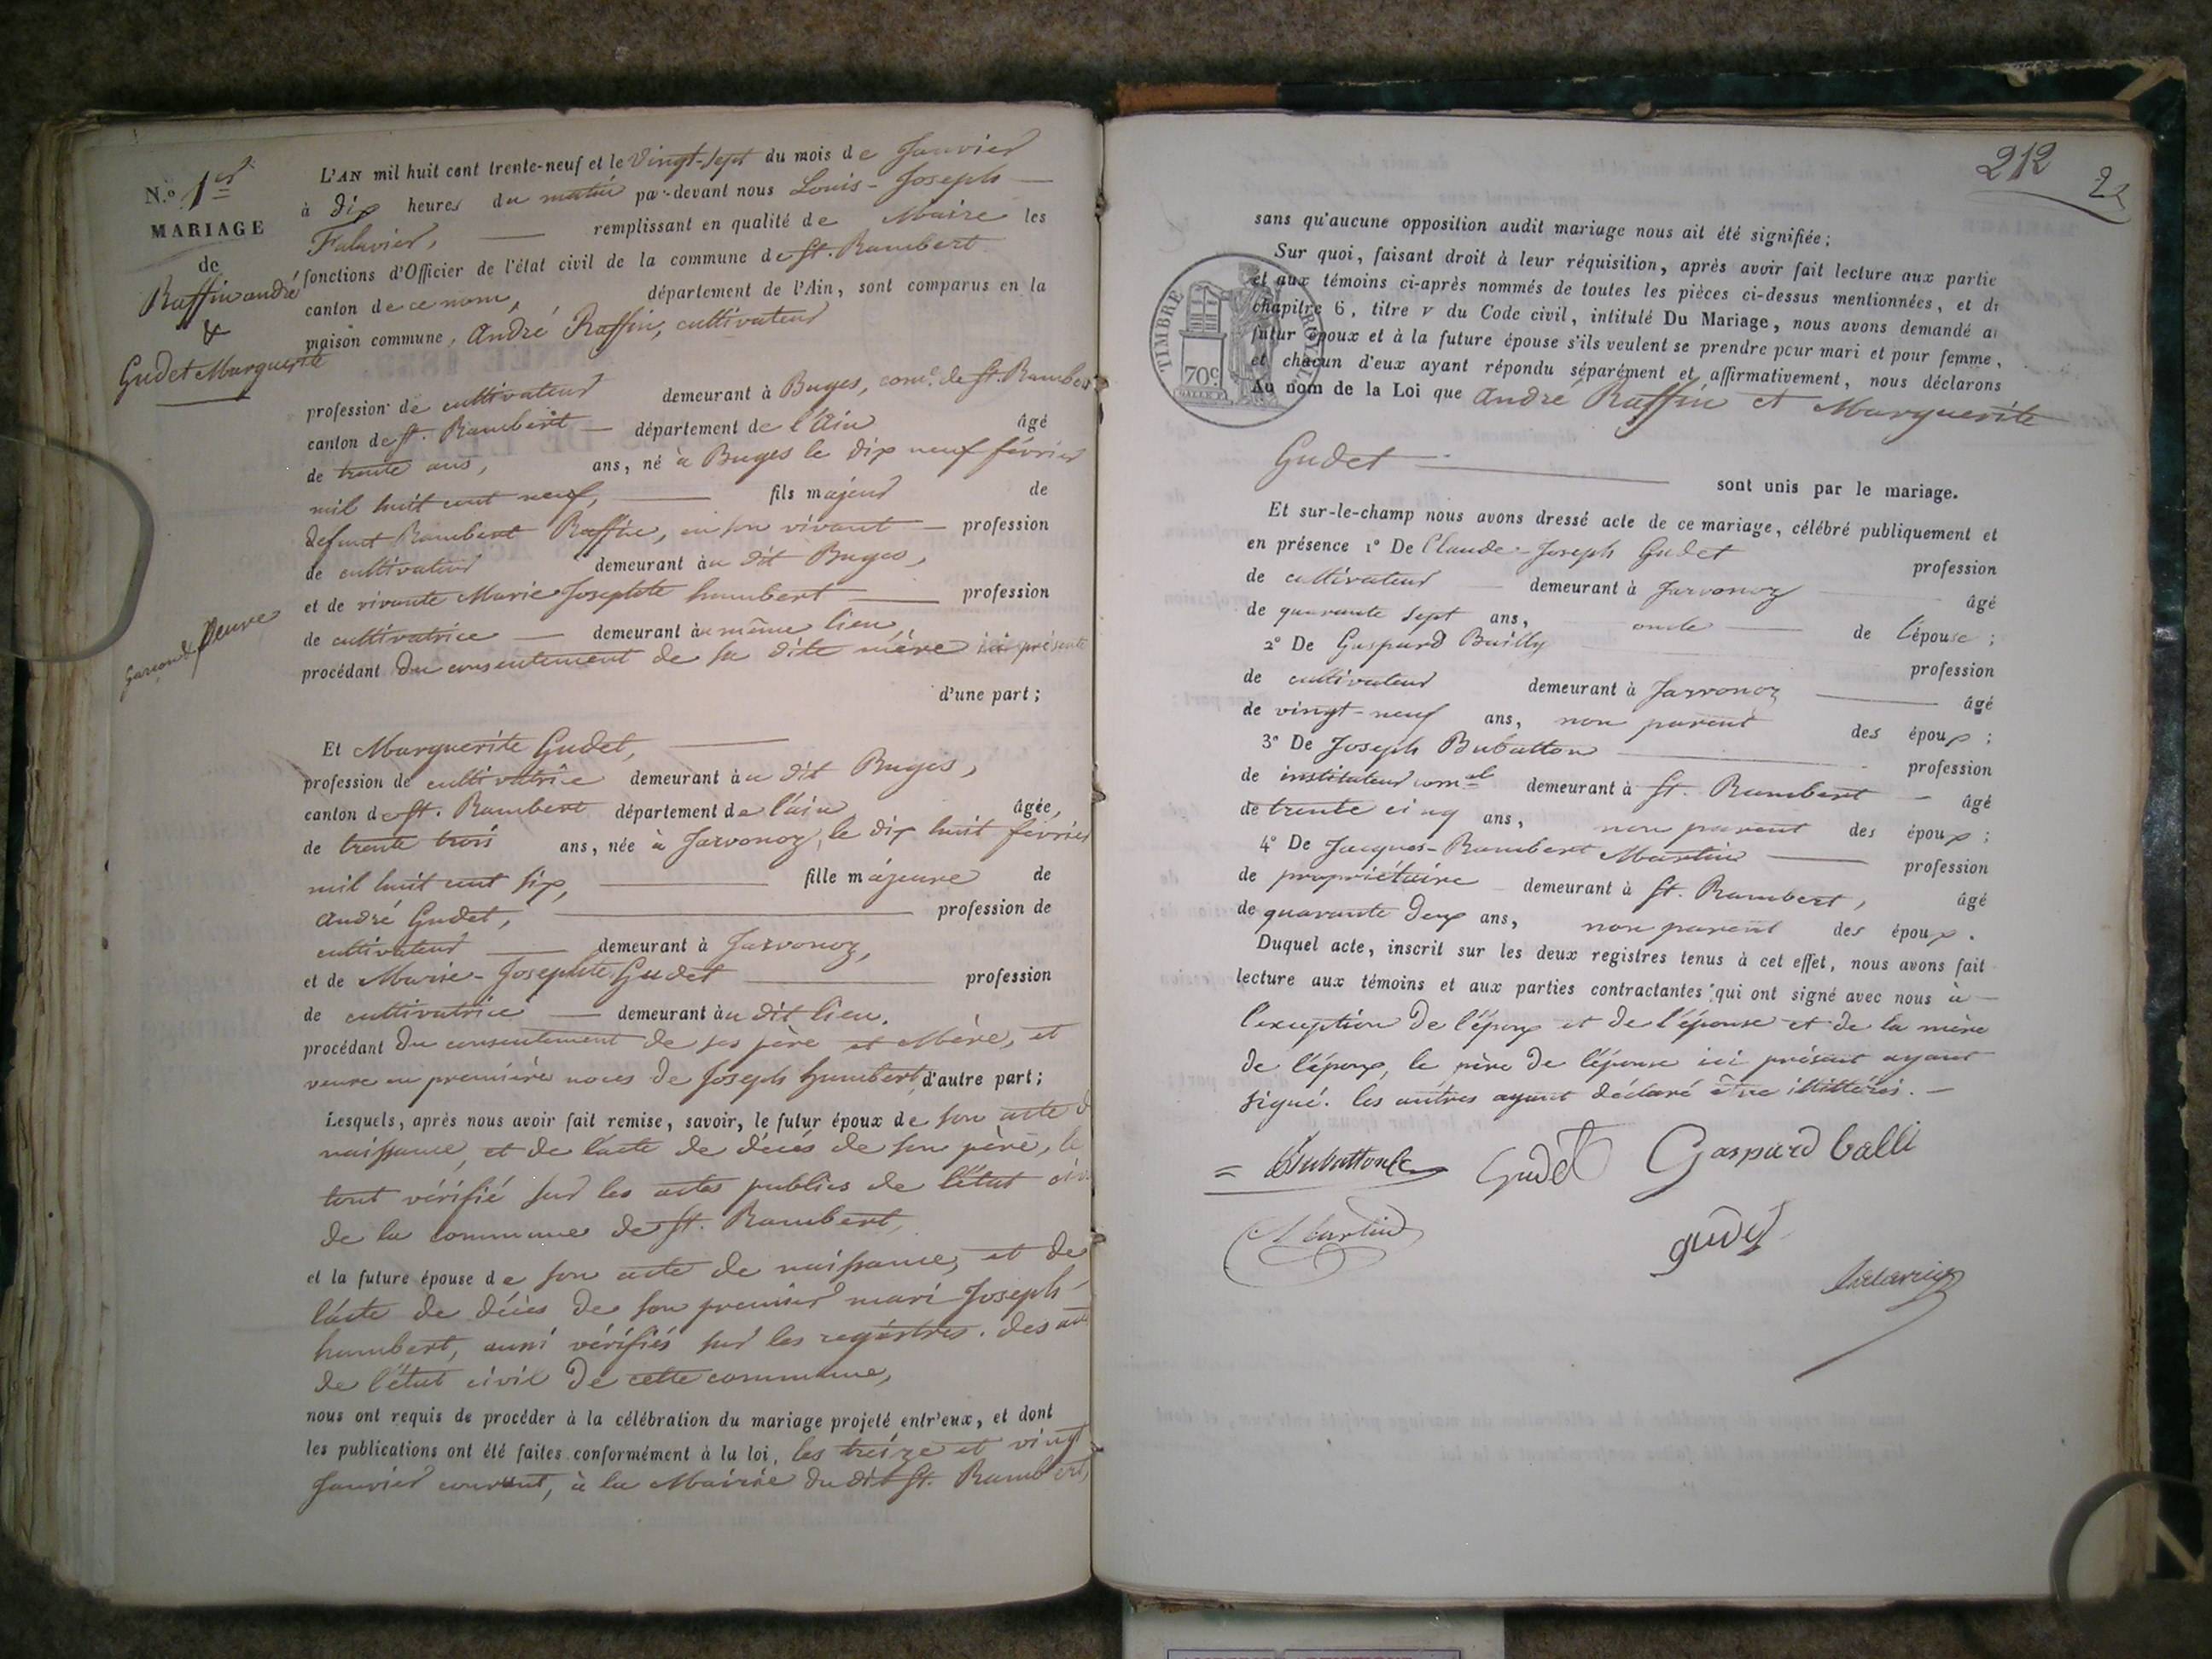 N.º 1er
MARIAGE
de
Raffin andré
&
Gudet Marguerite
garçon & veuve
L'AN mil huit cent trente-neuf et le vingt-sept du mois de Janvier
à dix heures du matin par-devant nous Louis-Joseph
Falavier, remplissant en qualité de Maire les
fonctions d'Officier de l'état civil de la commune de St. Rambert
canton de ce nom, département de l'Ain, sont comparus en la
maison commune, André Raffin, cultivateur
profession de cultivateur demeurant à Buges, come. de St. Rambert
canton de St. Rambert département de l'Ain âgé
de trente ans, ans, né à Buges le dix neuf février
mil huit cent neuf, fils majeur de
defunt Rambert Raffin, en son vivant profession
de cultivateur demeurant au dit Buges,
et de vivante Marie Josephte humbert profession
de cultivatrice demeurant au même lieu,
procédant du consentement de sa dite mère ici présente
d'une part;
Et Marguerite Gudet,
profession de cultivatrice demeurant au dit Buges,
canton de St. Rambert département de l'ain âgée,
de trente trois ans, née à Jarvonoz, le dix huit février
mil huit cent six, fille majeure de
André Gudet, profession de
cultivateur demeurant à Jarvonoz,
et de Marie-Josephte Gudet profession
de cultivatrice demeurant au dit lieu.
procédant du consentement de ses père et Mère, et
veuve en première noces de Joseph humbert, d'autre part;
Lesquels, après nous avoir fait remise, savoir, le futur époux de son acte d
naissance, et de l'acte de décès de son père, le
tout vérifié sur les actes publics de l'état civ
de la commune de St. Rambert,
et la future épouse de son acte de naissance, et de
l'acte de décès de son premier mari Joseph
humbert, aussi vérifiés sur les registres des act
de l'état civil de cette commune,
nous ont requis de procéder à la célébration du mariage projeté entr'eux, et dont
les publications ont été faites conformément à la loi, les treize et vingt
Janvier courant, à la Mairie du dit St. Rambert,
212
sans qu'aucune opposition audit mariage nous ait été signifiée;
Sur quoi, faisant droit à leur réquisition, après avoir fait lecture aux partie
et aux témoins ci-après nommés de toutes les pièces ci-dessus mentionnées, et d
chapitre 6, titre v du Code civil, intitulé Du Mariage, nous avons demandé a
futur époux et à la future épouse s'ils veulent se prendre pour mari et pour femme,
et chacun d'eux ayant répondu séparément et affirmativement, nous déclarons
Au nom de la Loi que André Raffin et Marguerite
TIMBRE ROYAL
70c.
Gudet
sont unis par le mariage.
Et sur-le-champ nous avons dressé acte de ce mariage, célébré publiquement et
en présence 1º De Claude-Joseph Gudet profession
de cultivateur demeurant à Jarvonoz âgé
de quarante sept ans, oncle de l'épouse;
2º De Gaspard Bailly profession
de cultivateur demeurant à Jarvonoz âgé
de vingt-neuf ans, non parent des époux;
3º De Joseph Bubatton profession
de instituteur comal demeurant à St. Rambert âgé
de trente cinq ans, non parent des époux;
4º De Jacques-Rambert Martin profession
de propriétaire demeurant à St. Rambert, âgé
de quarante deux ans, non parent des époux.
Duquel acte, inscrit sur les deux registres tenus à cet effet, nous avons fait
lecture aux témoins et aux parties contractantes qui ont signé avec nous à
l'exception de l'époux et de l'épouse et de la mère
de l'époux, le père de l'épouse ici présent ayant
signé. les autres ayant déclaré être illitérés.
Gudet Gaspard balli
Martin
gudet